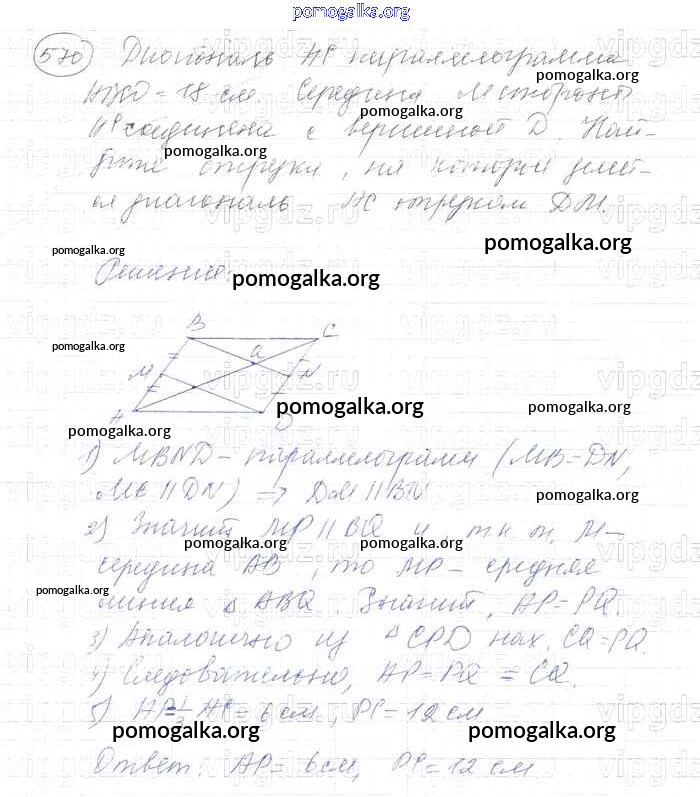 pomogalka.org
570 Диагональ AC параллелограмма
pomogalka.org
= 18 см. Середина M стороны
pomogalka.org
соединена с вершиной D. Най-
pomogalka.org
дите отрезки, на которые делит-
ся диагональ AC отрезком DM.
pomogalka.org
pomogalka.org
Решение:
pomogalka.org
B C
pomogalka.org
Q
M N
A D
pomogalka.org
pomogalka.org
pomogalka.org
1) MBND - параллелограмм (MB = DN,
|| DN) => DM || BN
pomogalka.org
2) Значит, MP || BQ и т.к. т. M -
pomogalka.org
pomogalka.org
середина AB, то MP - средняя
pomogalka.org
линия △ ABQ. Значит, AP = PQ.
3) Аналогично из △ CPD нах. CQ = PQ.
4) Следовательно, AP = PQ = CQ.
5) AP = 1/3 AC = 6 см, PC = 12 см
pomogalka.org
pomogalka.org
Ответ: AP = 6 см, PC = 12 см